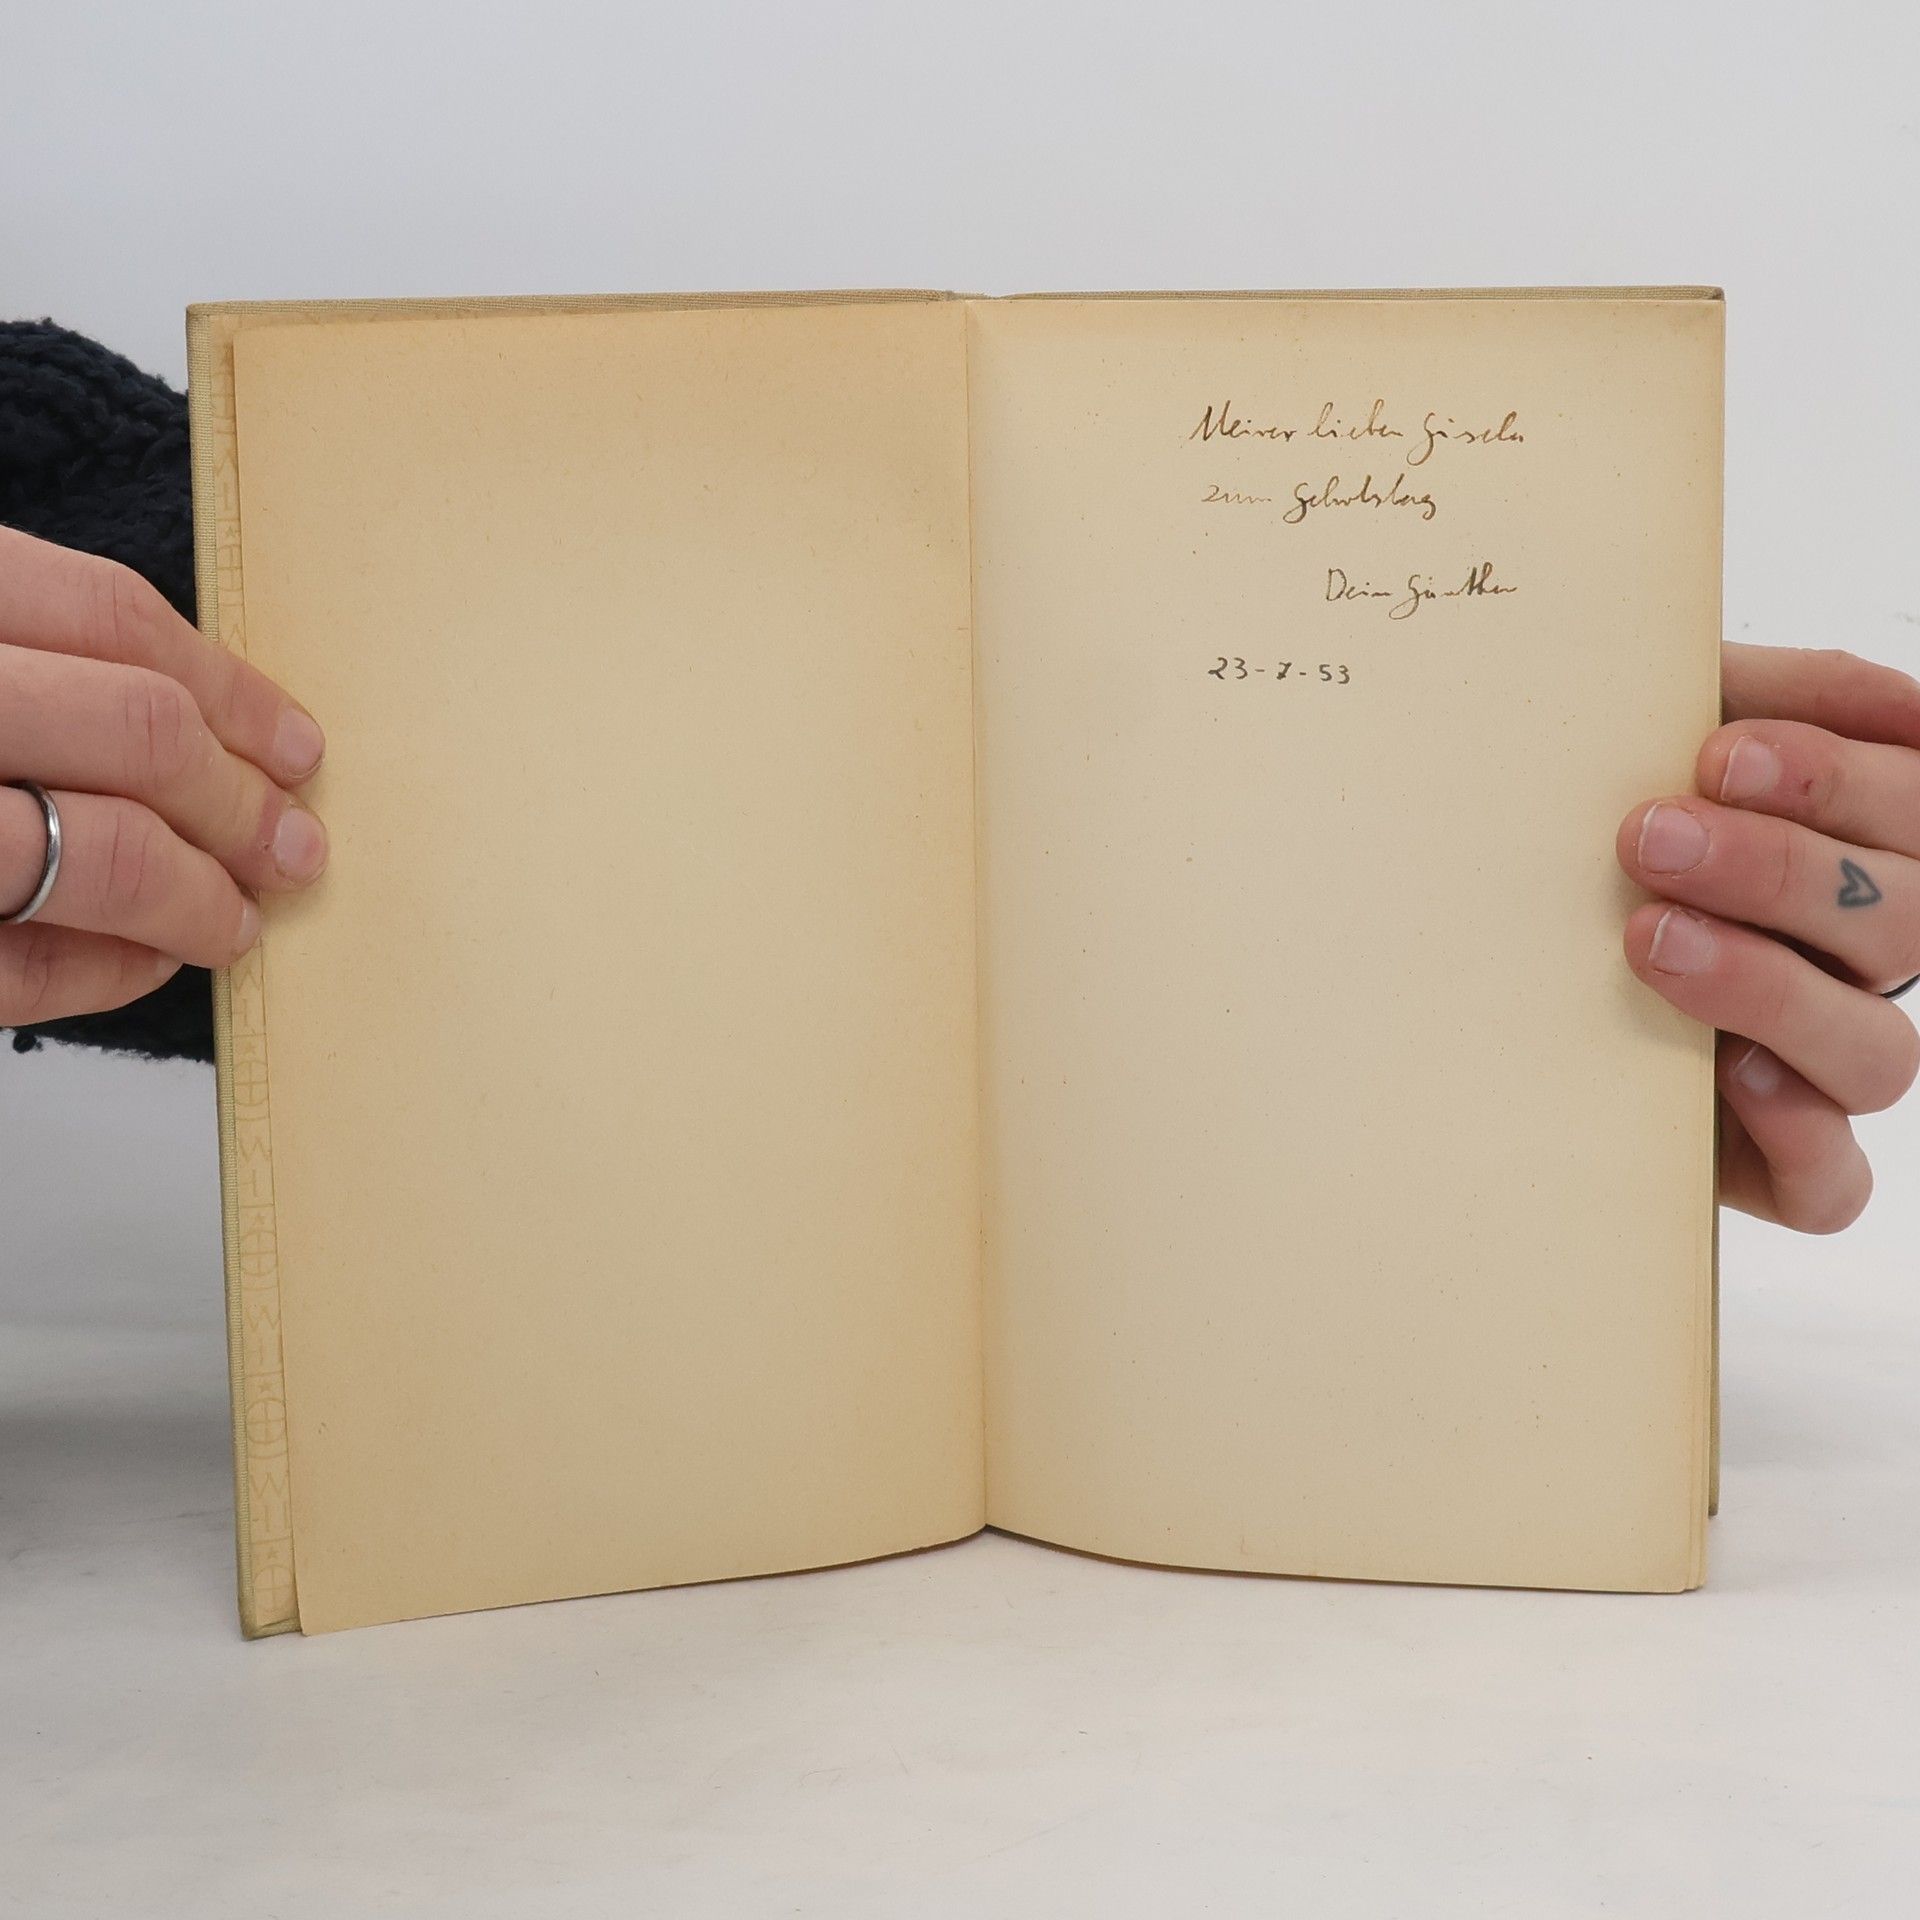 Meiner lieben Gisela
zum Geburtstag
Dein Günther
23-7-53